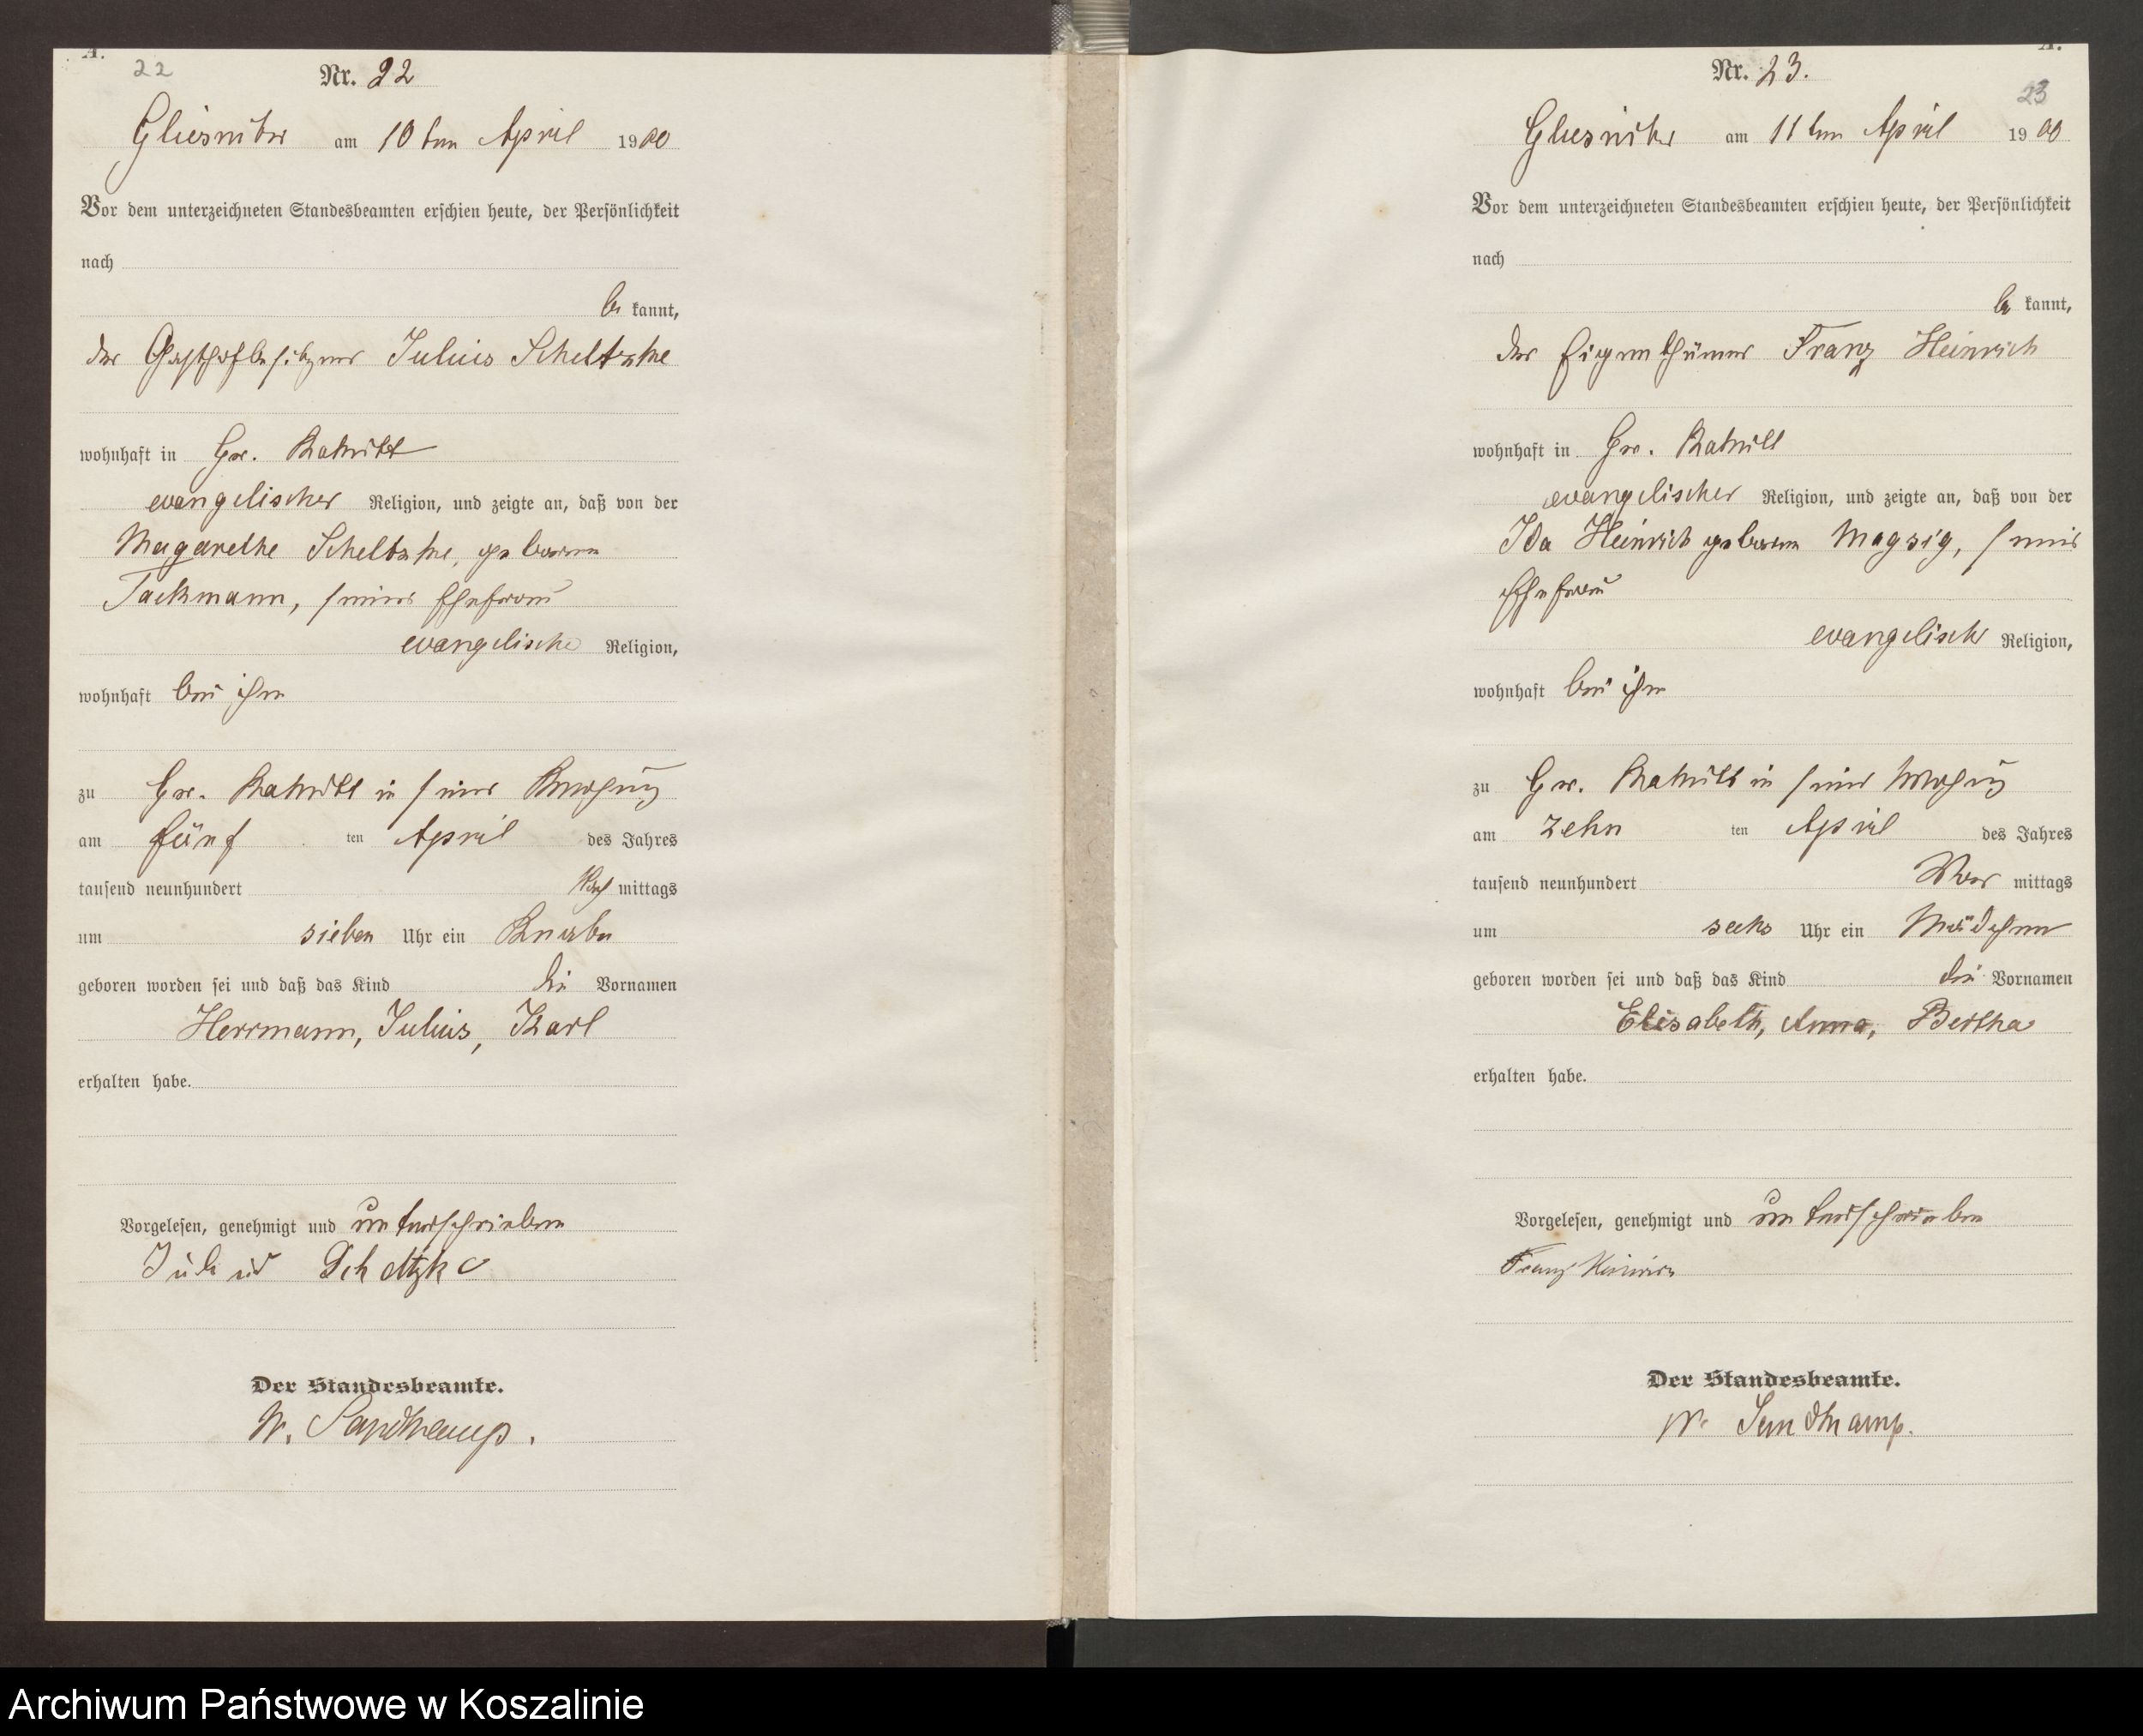 A.
22
Nr. 22
Gliesnitz am 10ten April 1900
Vor dem unterzeichneten Standesbeamten erschien heute, der Persönlichkeit
nach
be kannt,
der Gasthofbesitzer Julius Scheltzke
wohnhaft in Gr.
evangelischer Religion, und zeigte an, daß von der
Magarethe Scheltzke, geborene
Tackmann, seiner Ehefrau
evangelische Religion,
wohnhaft bei ihm
zu Gr. in seiner
am fünf ten April des Jahres
tausend neunhundert Nach mittags
um sieben Uhr ein Knabe
geboren worden sei und daß das Kind die Vornamen
Herrmann, Julius, Karl
erhalten habe.
Vorgelesen, genehmigt und unterschrieben
Julius Scheltzke
Der Standesbeamte.
W. Sandkamp.
A.
Nr. 23.
23
Gliesnitz am 11ten April 1900
Vor dem unterzeichneten Standesbeamten erschien heute, der Persönlichkeit
nach
be kannt,
der Eigenthümer Franz Heinrich
wohnhaft in Gr.
evangelischer Religion, und zeigte an, daß von der
Ida Heinrich geborene Magsig, seiner
Ehefrau
evangelischer Religion,
wohnhaft bei ihm
zu Gr. in seiner Wohnung
am zehn ten April des Jahres
tausend neunhundert Vor mittags
um sechs Uhr ein Mädchen
geboren worden sei und daß das Kind die Vornamen
Elisabeth, Anna, Bertha
erhalten habe.
Vorgelesen, genehmigt und unterschrieben
Franz Heinrich
Der Standesbeamte.
W. Sandkamp.
Archiwum Państwowe w Koszalinie